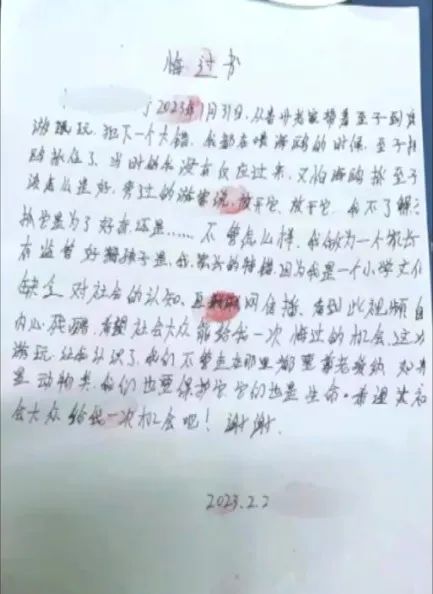 悔过书
于2023年1月31日，从贵州老家带着至子到
游玩玩，犯下一个大错，我都在喂海鸥的时候，至子把
鸥抓住了，当时的我没有仅应过来，又怕海鸥抓至子
该怎么是好，旁过的游客说，放开它，放开它，我不了解
抓它是为了好奇还是……不管怎么样，我做为一个家长
有监督好孩子是我家长的特错，因为我是一个小学文化
缺乏对社会的认知，网信播，看到此视频自
内心，希望社会大众能给我一次悔过的机会，这次
游玩，认识了，我们不管走在哪里都要尊老爱幼，如
是动物类，我们也要保护它，它们也是生命。希望
会大众给我一次机会吧！谢谢.
2023.2.2